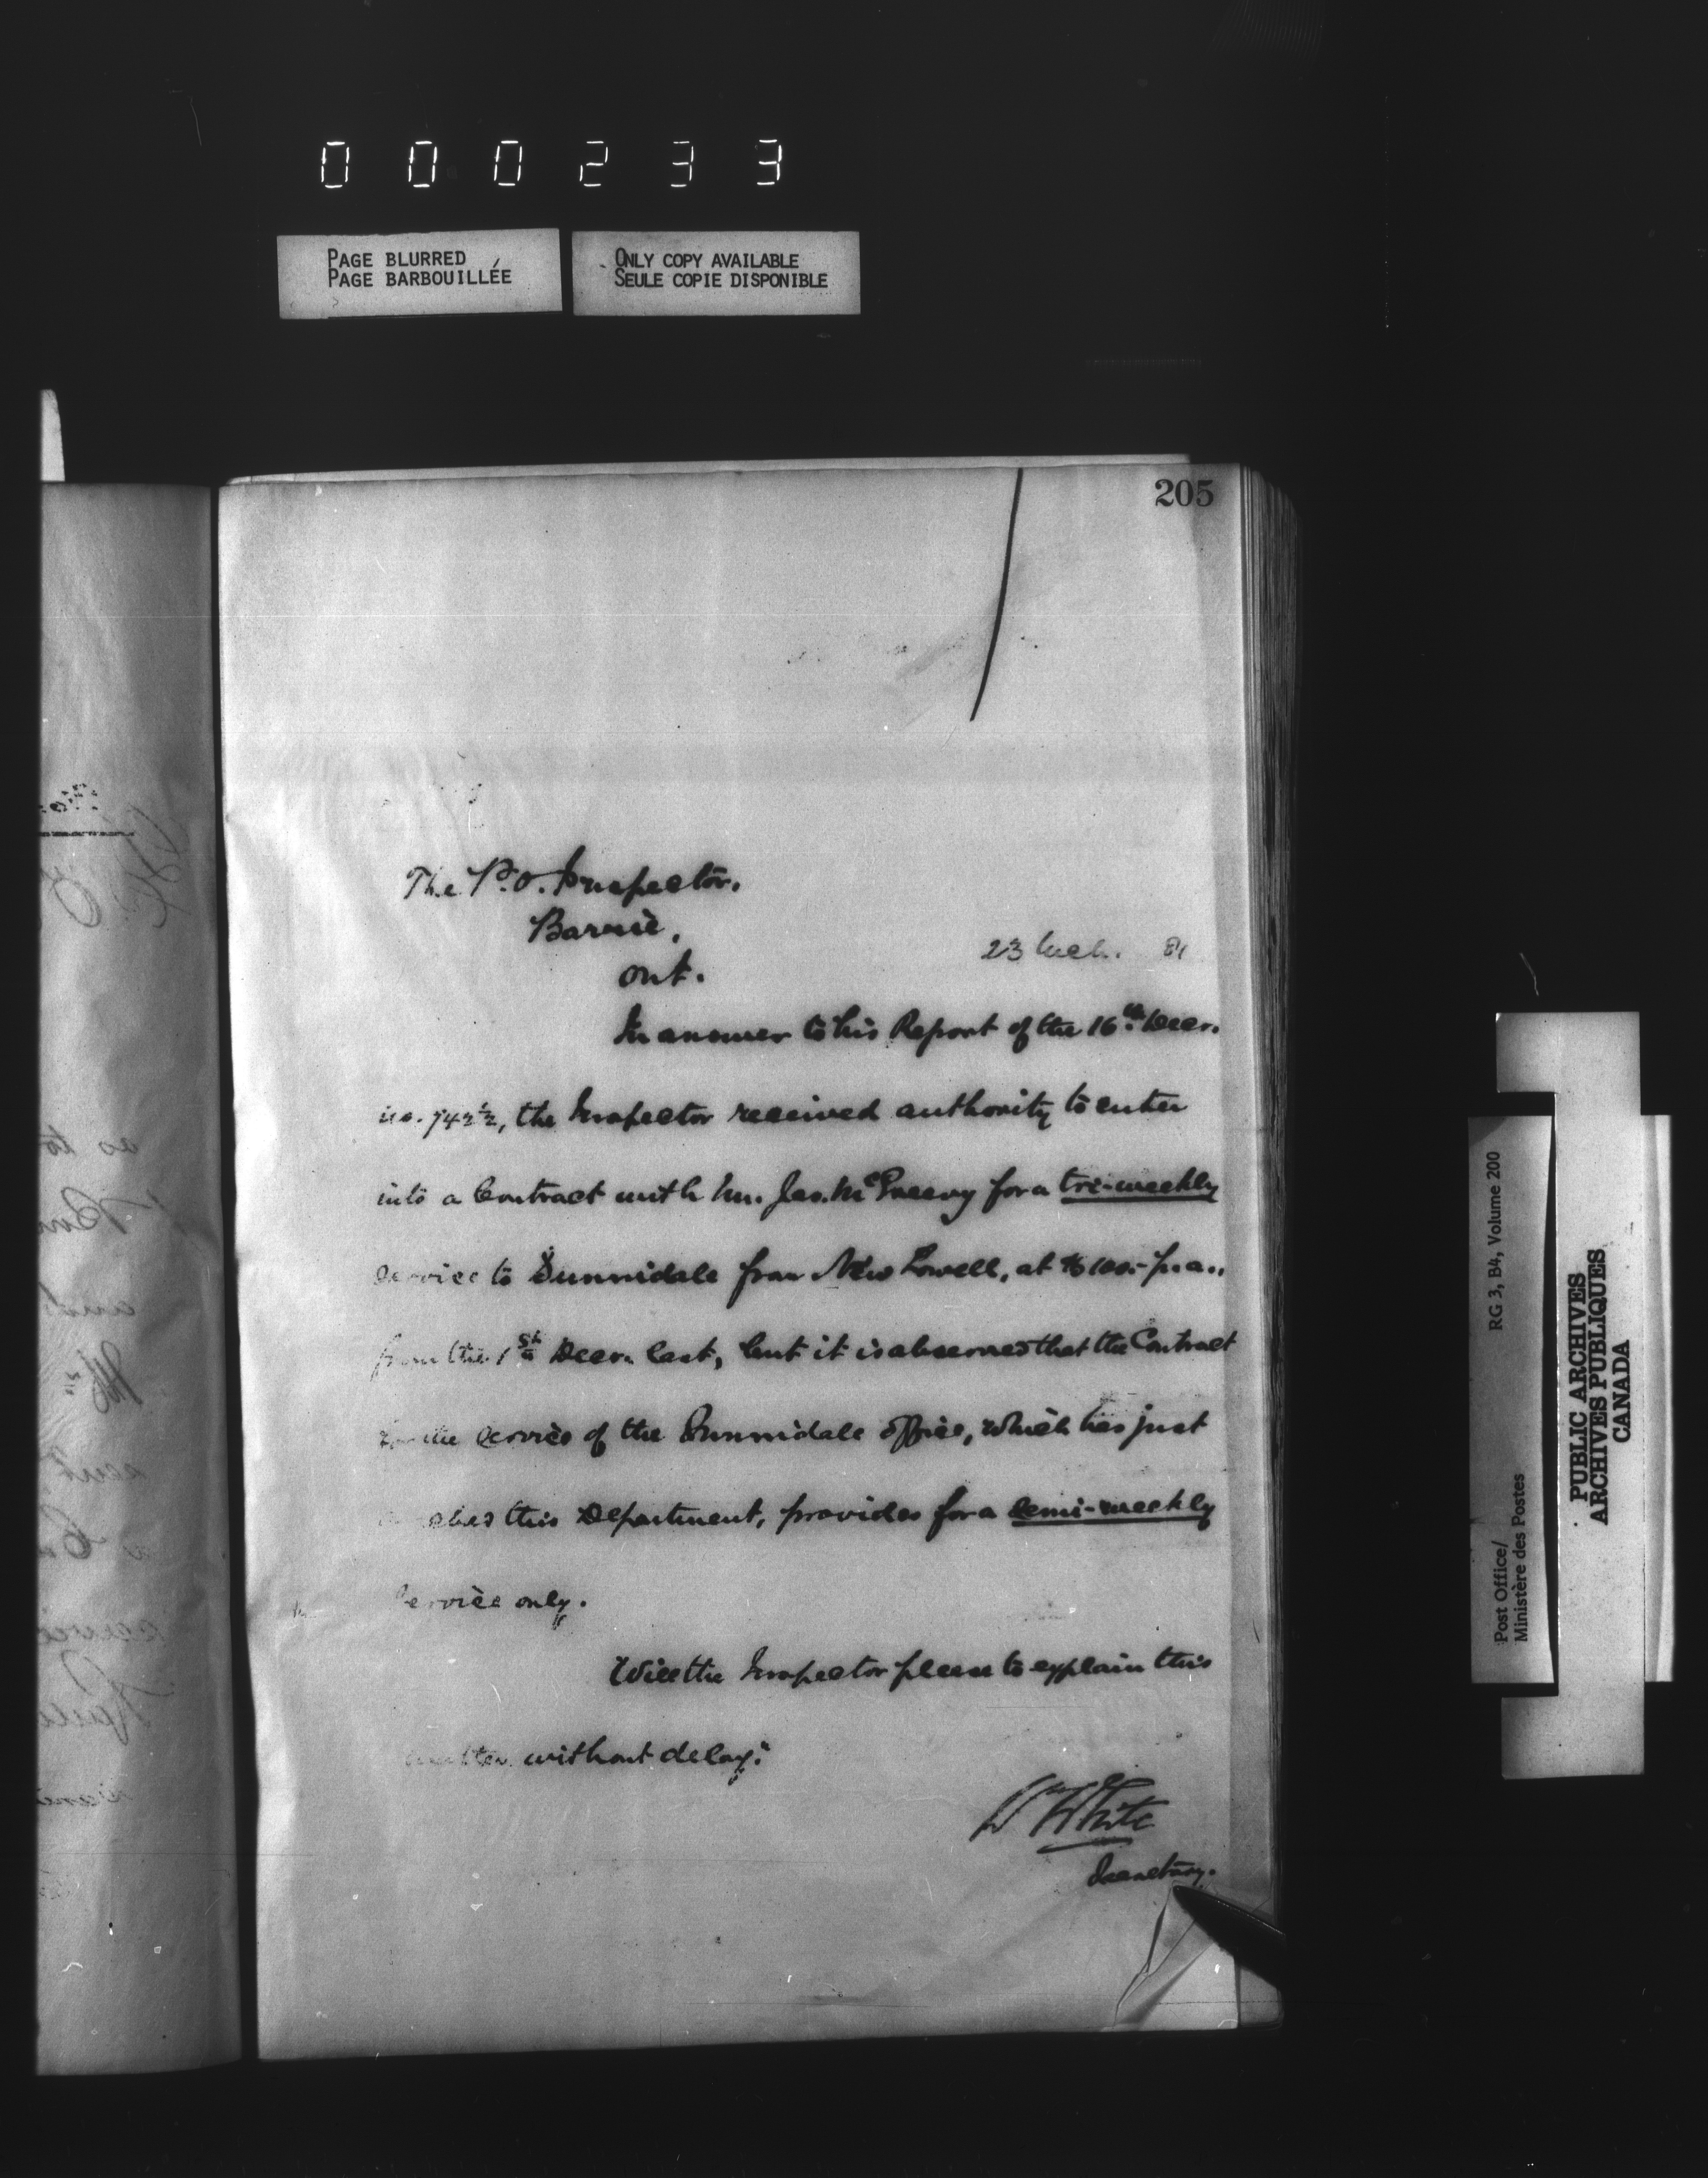 000233
PAGE BLURRED
PAGE BARBOUILLÉE
ONLY COPY AVAILABLE
SEULE COPIE DISPONIBLE
205
The P.O. Inspector,
Barrie,
Ont.
23 Mch. 81
In answer to his Report of the 16th Decr.
no. 742½, the Inspector received authority to enter
into a Contract with Mr. Jas. McGreevy for a tri-weekly
service to Sunnidale from New Lowell, at $100.- p.a.,
from the 1st Decr. last, but it is observed that the Contract
for the service of the Sunnidale Office, which has just
reached this Department, provides for a semi-weekly
Service only.
Will the Inspector please to explain this
matter without delay.
W White
Secretary.
RG 3, B4, Volume 200
Post Office/
Ministère des Postes
PUBLIC ARCHIVES
ARCHIVES PUBLIQUES
CANADA